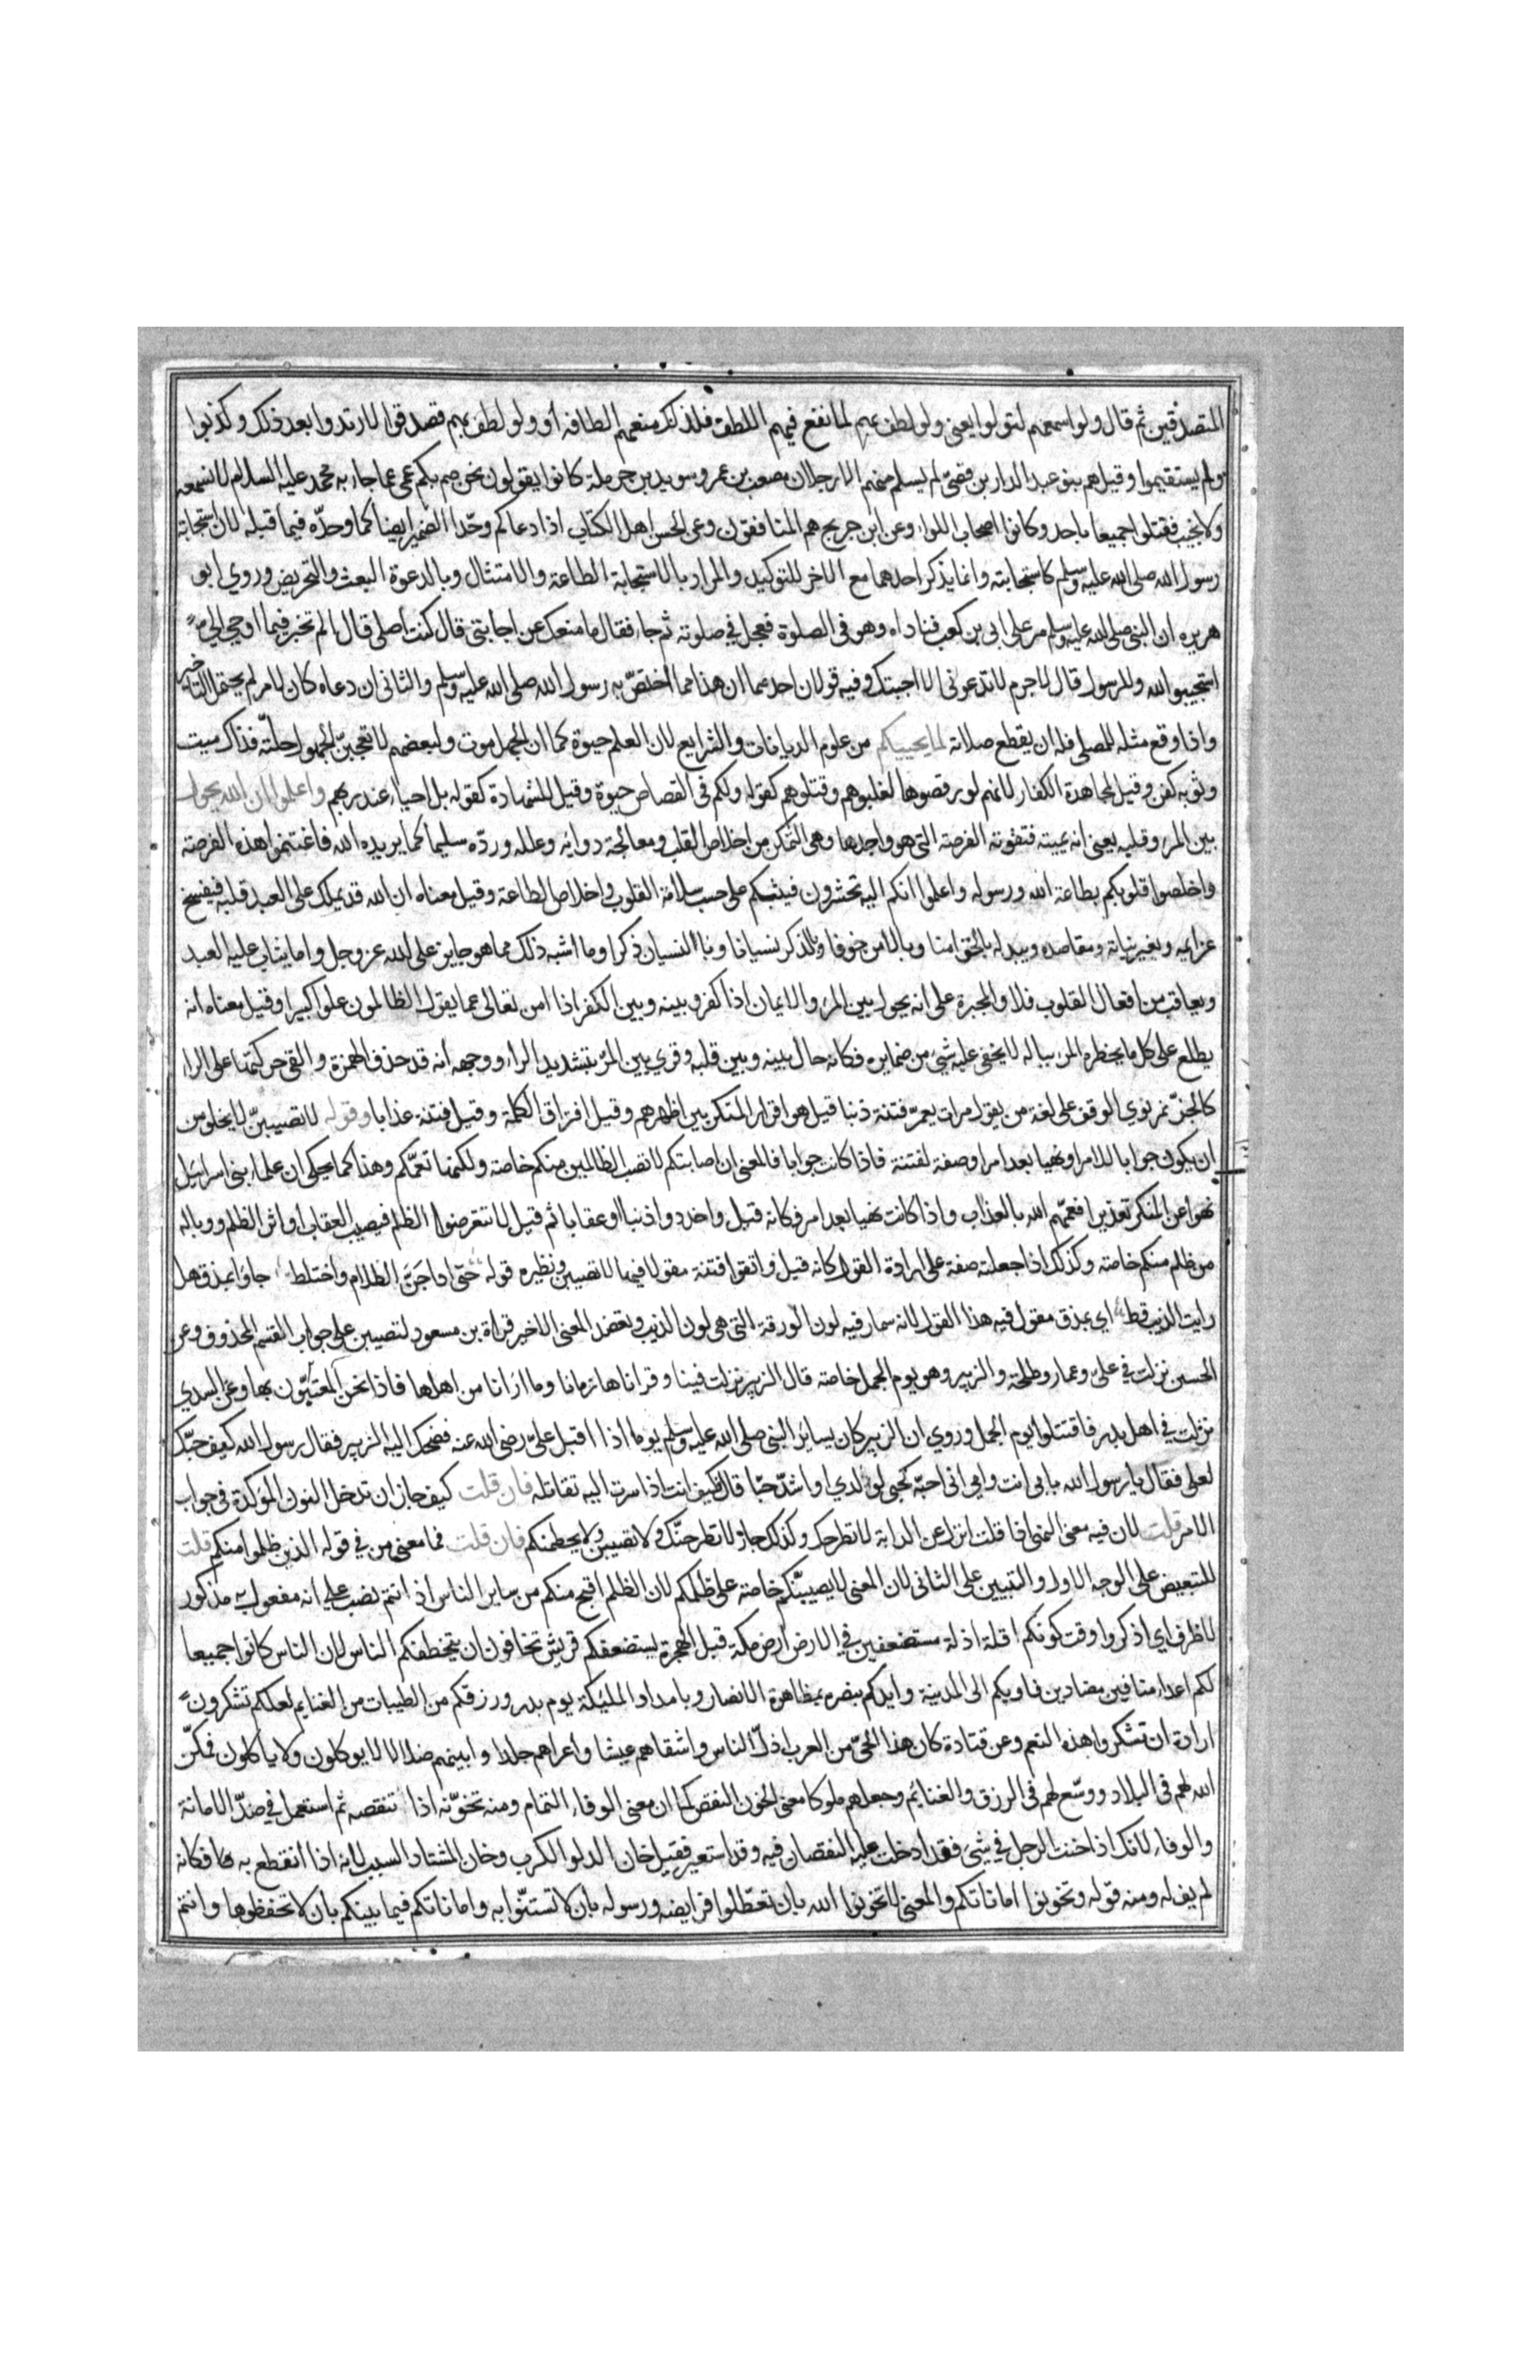 المتصدقين ثم قال ولو اسمعهم لتولوا يعني ولو لطف بهم لما نفع فيهم اللطف فلذلك منعهم الطافه أو ولو لطف بهم فصدقوا لارتدوا بعد ذلك وكذبوا
ولم يستقيموا وقيل هم بنو عبد الدار بن قصيّ لم يسلم منهم الا رجلان مصعب بن عمر وسويد بن حرملة كانوا يقولون نحن صم بكم عمي عما جاء به محمد عليه السلام لا نسمعه
ولا نجيب فقتلوا جميعا باحد وكانوا اصحاب اللواء وعن ابن جريج هم المنافقون وعن الحسن اهل الكتاب اذا دعاكم وحّد الضمير ايضا كما وحّده فيما قبله لان استجابة
رسول الله صلى الله عليه وسلم كاستجابته وانما يذكر احدهما مع الاخر للتوكيد والمراد بالاستجابة الطاعة والامتثال وبالدعوة البعث والتحريض وروي ابو
هريره ان النبي صلى الله عليه وسلم مر على ابي بن كعب فناداه وهو في الصلوة فعجل في صلوته ثم جاء فقال ما منعك عن اجابتي قال كنت اصلي قال الم تخبر فيما اوحي الي
استجيبوا لله وللرسول قال لا جرم لا تدعوني الا اجبتك وفيه قولان احدهما ان هذا مما اختصّ به رسول الله صلى الله عليه وسلم والثاني ان دعاه كان لامر لم يحتمل التاخير
واذا وقع مثله للمصلي فله ان يقطع صلاته لما يحييكم من علوم الديانات والشرايع لان العلم حيوة كما ان الجهل موت ولبعضهم لا تعجبنّ الجهول حلّته فذاك ميت
وثوبه كفن وقيل لمجاهدة الكفار لانهم لو رفضوها لغلبوهم وقتلوهم كقوله ولكم في القصاص حيوة وقيل للشهادة كقوله بل احياء عند ربهم واعلموا ان الله يحول
بين المرء وقلبه يعني انه يميته فتفوته الفرصة التي هو واجدها وهي التمكن من اخلاص القلب ومعالجة دوائه وعلله وردّه سليما كما يريده الله فاغتنموا هذه الفرصة
واخلصوا قلوبكم بطاعة الله ورسوله واعلموا انكم اليه تحشرون فيثبكم على حسب سلامة القلوب واخلاص الطاعة وقيل معناه ان الله قد يملك على العبد قلبه فيفسخ
عزايمه ويغير نياته ومقاصده ويبدله بالخوف امنا وبالامن خوفا وبالذكر نسيانا وبالنسيان ذكرا وما اشبه ذلك مما هو جايز على الله عز وجل واما يثاب عليه العبد
ويعاقب من افعال القلوب فلا والمجبرة على انه يحول بين المرء والايمان اذا كفر وبينه وبين الكفر اذا امن تعالى عما يقول الظالمون علوا كبيرا وقيل معناه انه
يطلع على كل ما يخطره المرء بباله لا يخفى عليه شيء من ضمايره فكانه حال بينه وبين قلبه وقري بين المرّ بتشديد الراء ووجهه انه قد حذف الهمزة والقى حركتها على الراء
كالخبّ ثم نوي الوقف على لغة من يقول مررت بعمرّ فتنة ذنبا قيل هو اقرار المنكر بين اظهرهم وقيل افتراق الكلمة وقيل فتنة عذابا وقوله لا تصيبنّ لا يخلو من
ان يكون جوابا للامر او نهيا بعد امر او صفة لفتنة فاذا كانت جوابا فالمعنى ان اصابتكم لا تصب الظالمين منكم خاصة ولكنها تعمّكم وهذا كما يحكى ان علماء بني اسرائيل
نهوا عن المنكر تعذيرا فعمّهم الله بالعذاب واذا كانت نهيا بعد امر فكانه قيل واحذروا ذنبا او عقابا ثم قيل لا تتعرضوا الظلم فيصيب العقاب او اثر الظلم ووباله
من ظلم منكم خاصة وكذلك اذا جعلته صفة على ارادة القول كانه قيل واتقوا فتنة مقولا فيها لا تصيبن ونظيره قوله حتى اذا جَنَّ الظلام واختلط جاؤا بمذق هل
رايت الذيب قط اي بمذق مقول فيه هذا القول لانه سمار فيه لون الورقة التي هي لون الذيب وتعضد المعنى الاخير قراة بن مسعود لتصيبن على جواب القسم المحذوف وعن
الحسن نزلت في علي وعمار وطلحة والزبير وهو يوم الجمل خاصة قال الزبير نزلت فينا وقراناها زمانا وما ارانا من اهلها فاذا نحن المعنيّون بها وعن السدي
نزلت في اهل بدر فاقتتلوا يوم الجمل وروي ان الزبير كان يساير النبي صلى الله عليه وسلم يوما اذا اقبل عليّ رضي الله عنه فضحك اليه الزبير فقال رسول الله كيف حبّك
لعلي فقال يا رسول الله بابي انت وامي اني احبّه كحبي لولدي او اشدّ حبّا قال فكيف انت اذا سرت اليه تقاتله فان قلت كيف جاز ان تدخل النون المؤكدة في جواب
الامر قلت لان فيه معنى النهي اذا قلت انزل عن الدابة لا تطرحك وكذلك جاز لا تطرحنّك ولا تصيبن ولا يحطمنكم فان قلت فما معنى من في قوله الذين ظلموا منكم قلت
للتبعيض على الوجه الاول والتبيين على الثاني لان المعنى لا يصيبنّكم خاصة على ظلمكم لان الظلم اقبح منكم من ساير الناس اذ انتم نصب على انه مفعول به مذكور
لا ظرف اي اذكروا وقت كونكم اقلة اذلة مستضعفين في الارض ارض مكة قبل الهجرة يستضعفكم قريش تخافون ان يتخطفكم الناس لان الناس كانوا جميعا
لكم اعداء منافين مضادين فاويكم الى المدينة وايدكم بنصره بمظاهرة الانصار وبامداد المليكة يوم بدر ورزقكم من الطيبات من الغنايم لعلكم تشكرون
ارادة ان تشكروا هذه النعم وعن قتادة كان هذا الحيّ من العرب اذلّ الناس واشقاهم عيشا واعراهم جلدا وابينهم ضلالا يوكلون ولا ياكلون فمكّن
الله لهم في البلاد ووسّع لهم في الرزق والغنائم وجعلهم ملوكا معنى الخون النقص كما ان معنى الوفاء التمام ومنه تخوّنه اذا تنقصه ثم استعمل في ضدّ الامانة
والوفاء لانك اذا خنت الرجل في شيء فقد ادخلت عليه النقصان فيه وقد استعير فقيل خان الدلو الكرب وخان المشتار السبب لانه اذا انقطع به فكانه
لم يف له ومنه قوله وتخونوا اماناتكم والمعنى لا تخونوا الله بان تعطّلوا فرايضه ورسوله بان لا تستنّوا به واماناتكم فيما بينكم بان لا تحفظوها وانتم